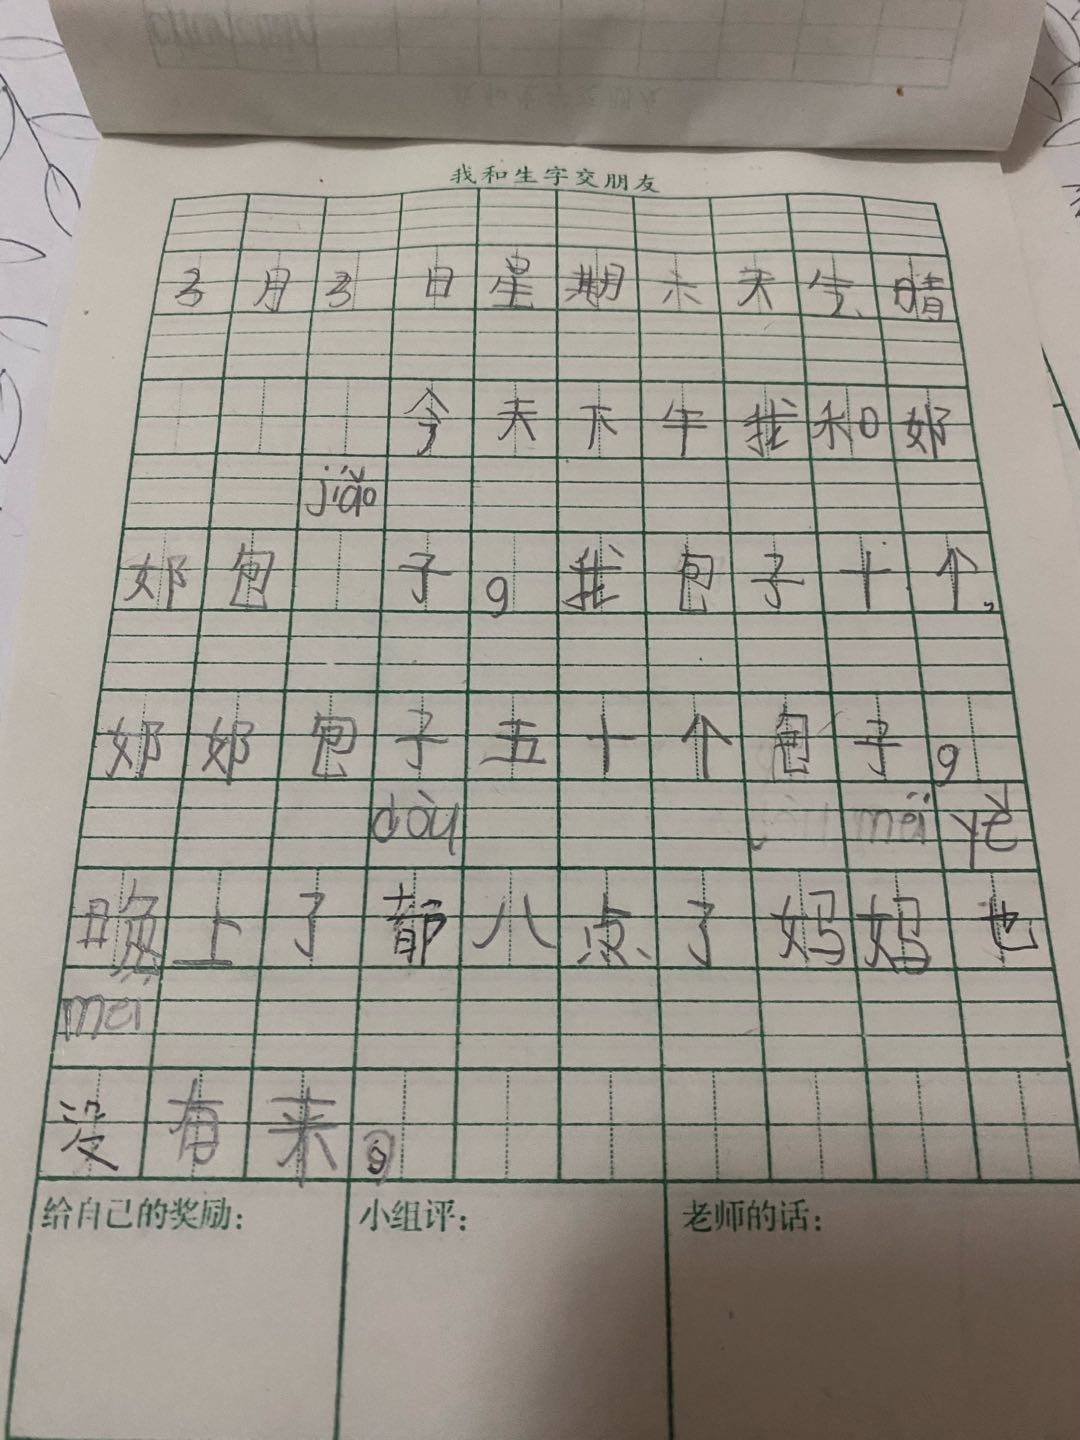 我和生字交朋友
3月3日星期六天气晴
今天下午我和奶
jiǎo
奶包 子。我包子十个,
奶奶包子五十个包子。
dòu méi yě
晚上了都八点了妈妈也
mei
没有来。
给自己的奖励: 小组评: 老师的话: